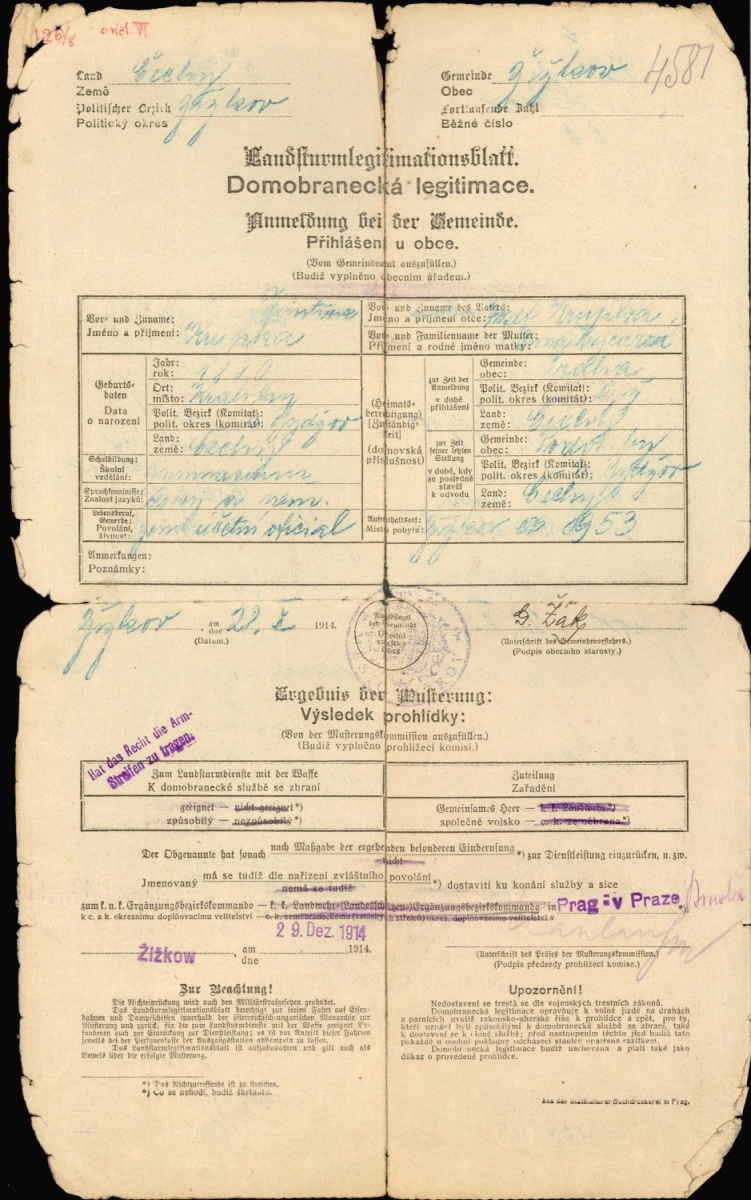 126/6
VI
4581
Land Čechy
Země
Politischer Bezirk Žižkov
Politický okres
Gemeinde Žižkov
Obec
Fortlaufende Zahl
Běžné číslo
Landsturmlegitimationsblatt.
Domobranecká legitimace.
Anmeldung bei der Gemeinde.
Přihlášení u obce.
(Vom Gemeindeamt auszufüllen.)
(Budiž vyplněno obecním úřadem.)
Vor- und Zuname:
Jméno a příjmení: Krupka
Vor- und Zuname des Vaters:
Jméno a příjmení otce: Josef Krupka
Vor- und Familienname der Mutter:
Příjmení a rodné jméno matky:
Geburtsdaten
Data
o narození
Jahr:
rok:
Ort:
místo:
Polit. Bezirk (Komitat):
polit. okres (komitát):
Land:
země: Čechy
Schulbildung:
Školní
vzdělání:
Sprachkenntnisse:
Znalost jazyků: český a něm.
Lebensberuf,
Gewerbe:
Povolání,
živnost: zem. účetní oficial
(Heimats-
berechtigung)
[Zuständig-
keit]
(domovská
příslušnost)
zur Zeit der
Anmeldung
v době
přihlášení
Gemeinde:
obec:
Polit. Bezirk (Komitat):
polit. okres (komitát):
Land:
země: Čechy
zur Zeit
seiner letzten
Stellung
v době, kdy
se posledně
stavěl
k odvodu
Gemeinde:
obec:
Polit. Bezirk (Komitat):
polit. okres (komitát):
Land:
země: Čechy
Aufenthaltsort:
Místo pobytu: Žižkov čp 1953
Anmerkungen:
Poznámky:
Žižkov am
dne 28. X 1914.
(Datum.)
Amtssiegel
der Gemeinde
Úřední
razítko
obce
G. Žák
(Unterschrift des Gemeindevorstehers.)
(Podpis obecního starosty.)
Ergebnis der Musterung:
Výsledek prohlídky:
(Von der Musterungskommission auszufüllen.)
(Budiž vyplněno prohlížecí komisí.)
Hat das Recht die Arm-
Streifen zu tragen.
Zum Landsturmdienste mit der Waffe
K domobranecké službě se zbraní
Zuteilung
Zařadění
geeignet — nicht geeignet*)
způsobilý — nezpůsobilý*)
Gemeinsames Heer — k. k. Landwehr*)
společné vojsko — c. k. zeměbrana*)
Der Obgenannte hat sonach nach Maßgabe der ergehenden besonderen Einberufung *) zur Dienstleistung einzurücken, u. zw.
nicht
Jmenovaný má se tudíž dle nařízení zvláštního povolání *) dostaviti ku konání služby a sice
nemá se tudíž
zum k. u. k. Ergänzungsbezirkskommando — k. k. Landwehr-(Landesschützen)Ergänzungsbezirkskommando in Prag - v Praze *)
k c. a k. okresnímu doplňovacímu velitelství — c. k. zeměbraneckému (zemských střelců) okres. doplňovacímu velitelství v
29. Dez. 1914
Žižkow, am
dne 1914.
(Unterschrift des Präses der Musterungskommission.)
(Podpis předsedy prohlížecí komise.)
Zur Beachtung!
Die Nichteinrückung wird nach den Militärstrafgesetzen geahndet.
Das Landsturmlegitimationsblatt berechtigt zur freien Fahrt auf Eisen-
bahnen und Dampfschiffen innerhalb der österreichisch-ungarischen Monarchie zur
Musterung und zurück, für die zum Landsturmdienste mit der Waffe geeignet Be-
fundenen auch zur Einrückung zur Dienstleistung; es ist vor Antritt dieser Fahrten
jeweils bei der Personenkasse der Ausgangsstation abstempeln zu lassen.
Das Landsturmlegitimationsblatt ist aufzubewahren und gilt auch als
Beweis über die erfolgte Musterung.
*) Das Nichtzutreffende ist zu streichen.
*) Co se nehodí, budiž škrtnuto.
Upozornění!
Nedostavení se trestá se dle vojenských trestních zákonů.
Domobranecká legitimace opravňuje k volné jízdě na drahách
a parnících uvnitř rakousko-uherské říše k prohlídce a zpět, pro ty,
kteří uznáni byli způsobilými k domobranecké službě se zbraní, také
k dostavení se k činné službě; před nastoupením těchto jízd budiž tato
pokaždé u osobní pokladny odcházecí stanice opatřena razítkem.
Domobranecká legitimace budiž uschována a platí také jako
důkaz o provedené prohlídce.
Aus der Statthalterei-Buchdruckerei in Prag.